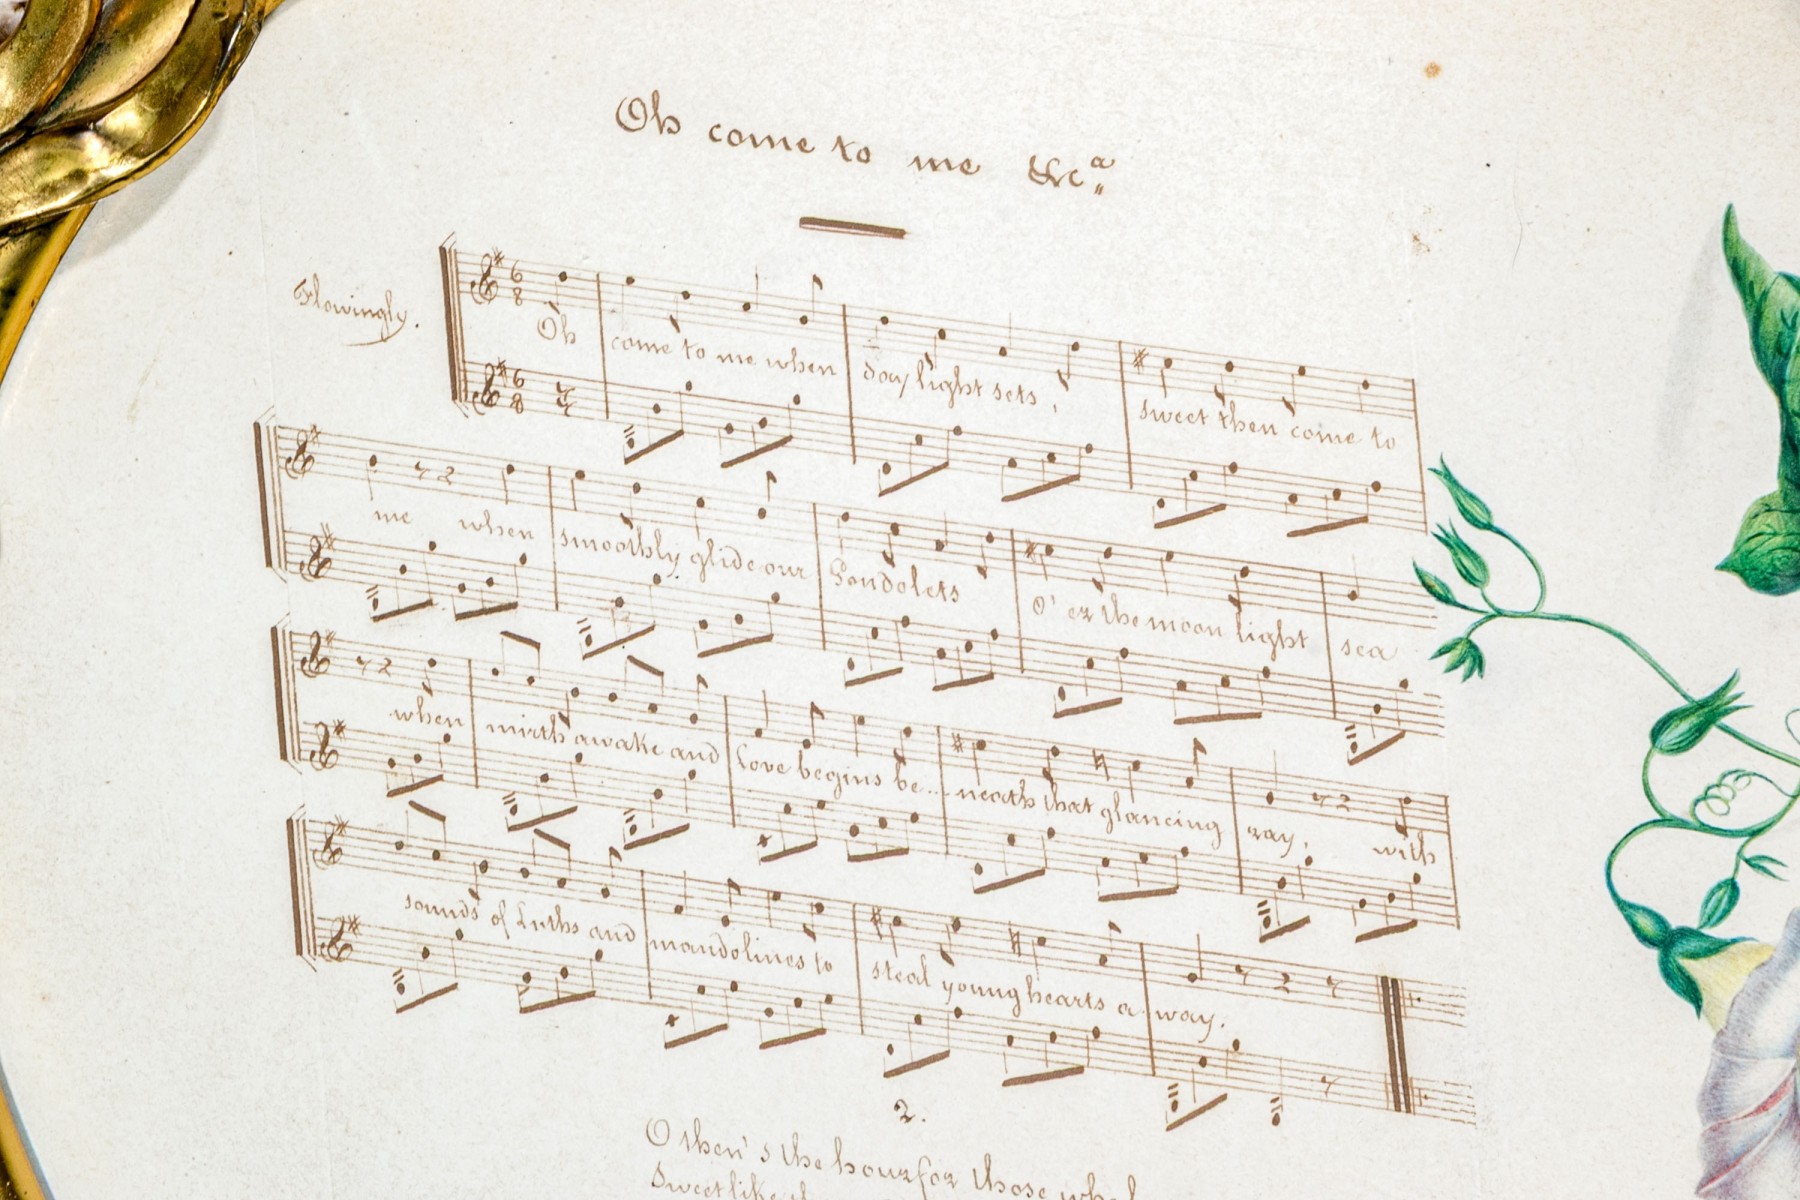 Oh come to me &c.a
Flowingly.
6 8
Oh come to me when day light sets, sweet then come to
6 8
me when smoothly glide our Gondolets O'er the moon light sea
when mirth awake and Love begins be.. neath that glancing ray, with
sounds of Luths and mandolines to steal young hearts a way.
2.
O then's the hour for those who
Sweet like